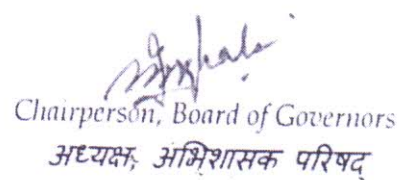 Chairperson, Board of Governors
अध्यक्ष, अभिशासक परिषद्